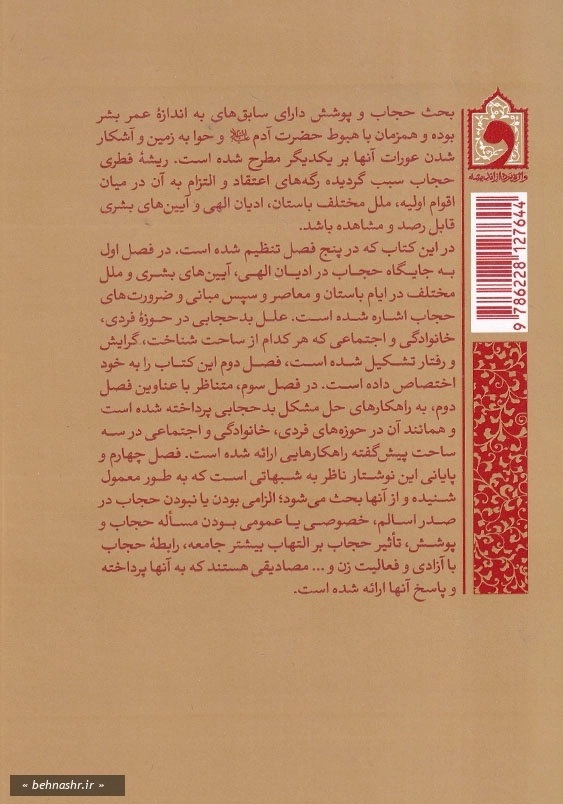 بحث حجاب و پوشش دارای سابق‌های به اندازهٔ عمر بشر
بوده و همزمان با هبوط حضرت آدم علیه‌السلام و حوا به زمین و آشکار
شدن عورات آنها بر یکدیگر مطرح شده است. ریشهٔ فطری
حجاب سبب گردیده رگه‌های اعتقاد و التزام به آن در میان
اقوام اولیه، ملل مختلف باستان، ادیان الهی و آیین‌های بشری
قابل رصد و مشاهده باشد.
در این کتاب که در پنج فصل تنظیم شده است. در فصل اول
به جایگاه حجاب در ادیان الهی، آیین‌های بشری و ملل
مختلف در ایام باستان و معاصر و سپس مبانی و ضرورت‌های
حجاب اشاره شده است. علل بدحجابی در حوزهٔ فردی،
خانوادگی و اجتماعی که هر کدام از ساحت شناخت، گرایش
و رفتار تشکیل شده است، فصل دوم این کتاب را به خود
اختصاص داده است. در فصل سوم، متناظر با عناوین فصل
دوم، به راهکارهای حل مشکل بدحجابی پرداخته شده است
و همانند آن در حوزه‌های فردی، خانوادگی و اجتماعی در سه
ساحت پیش‌گفته راهکارهایی ارائه شده است. فصل چهارم و
پایانی این نوشتار ناظر به شبهاتی است که به طور معمول
شنیده و از آنها بحث می‌شود؛ الزامی بودن یا نبودن حجاب در
صدر اسالم، خصوصی یا عمومی بودن مسأله حجاب و
پوشش، تأثیر حجاب بر التهاب بیشتر جامعه، رابطهٔ حجاب
با آزادی و فعالیت زن و ... مصادیقی هستند که به آنها پرداخته
و پاسخ آنها ارائه شده است.
واژه‌پرداز اندیشه
9 786228 127644
« behnashr.ir »